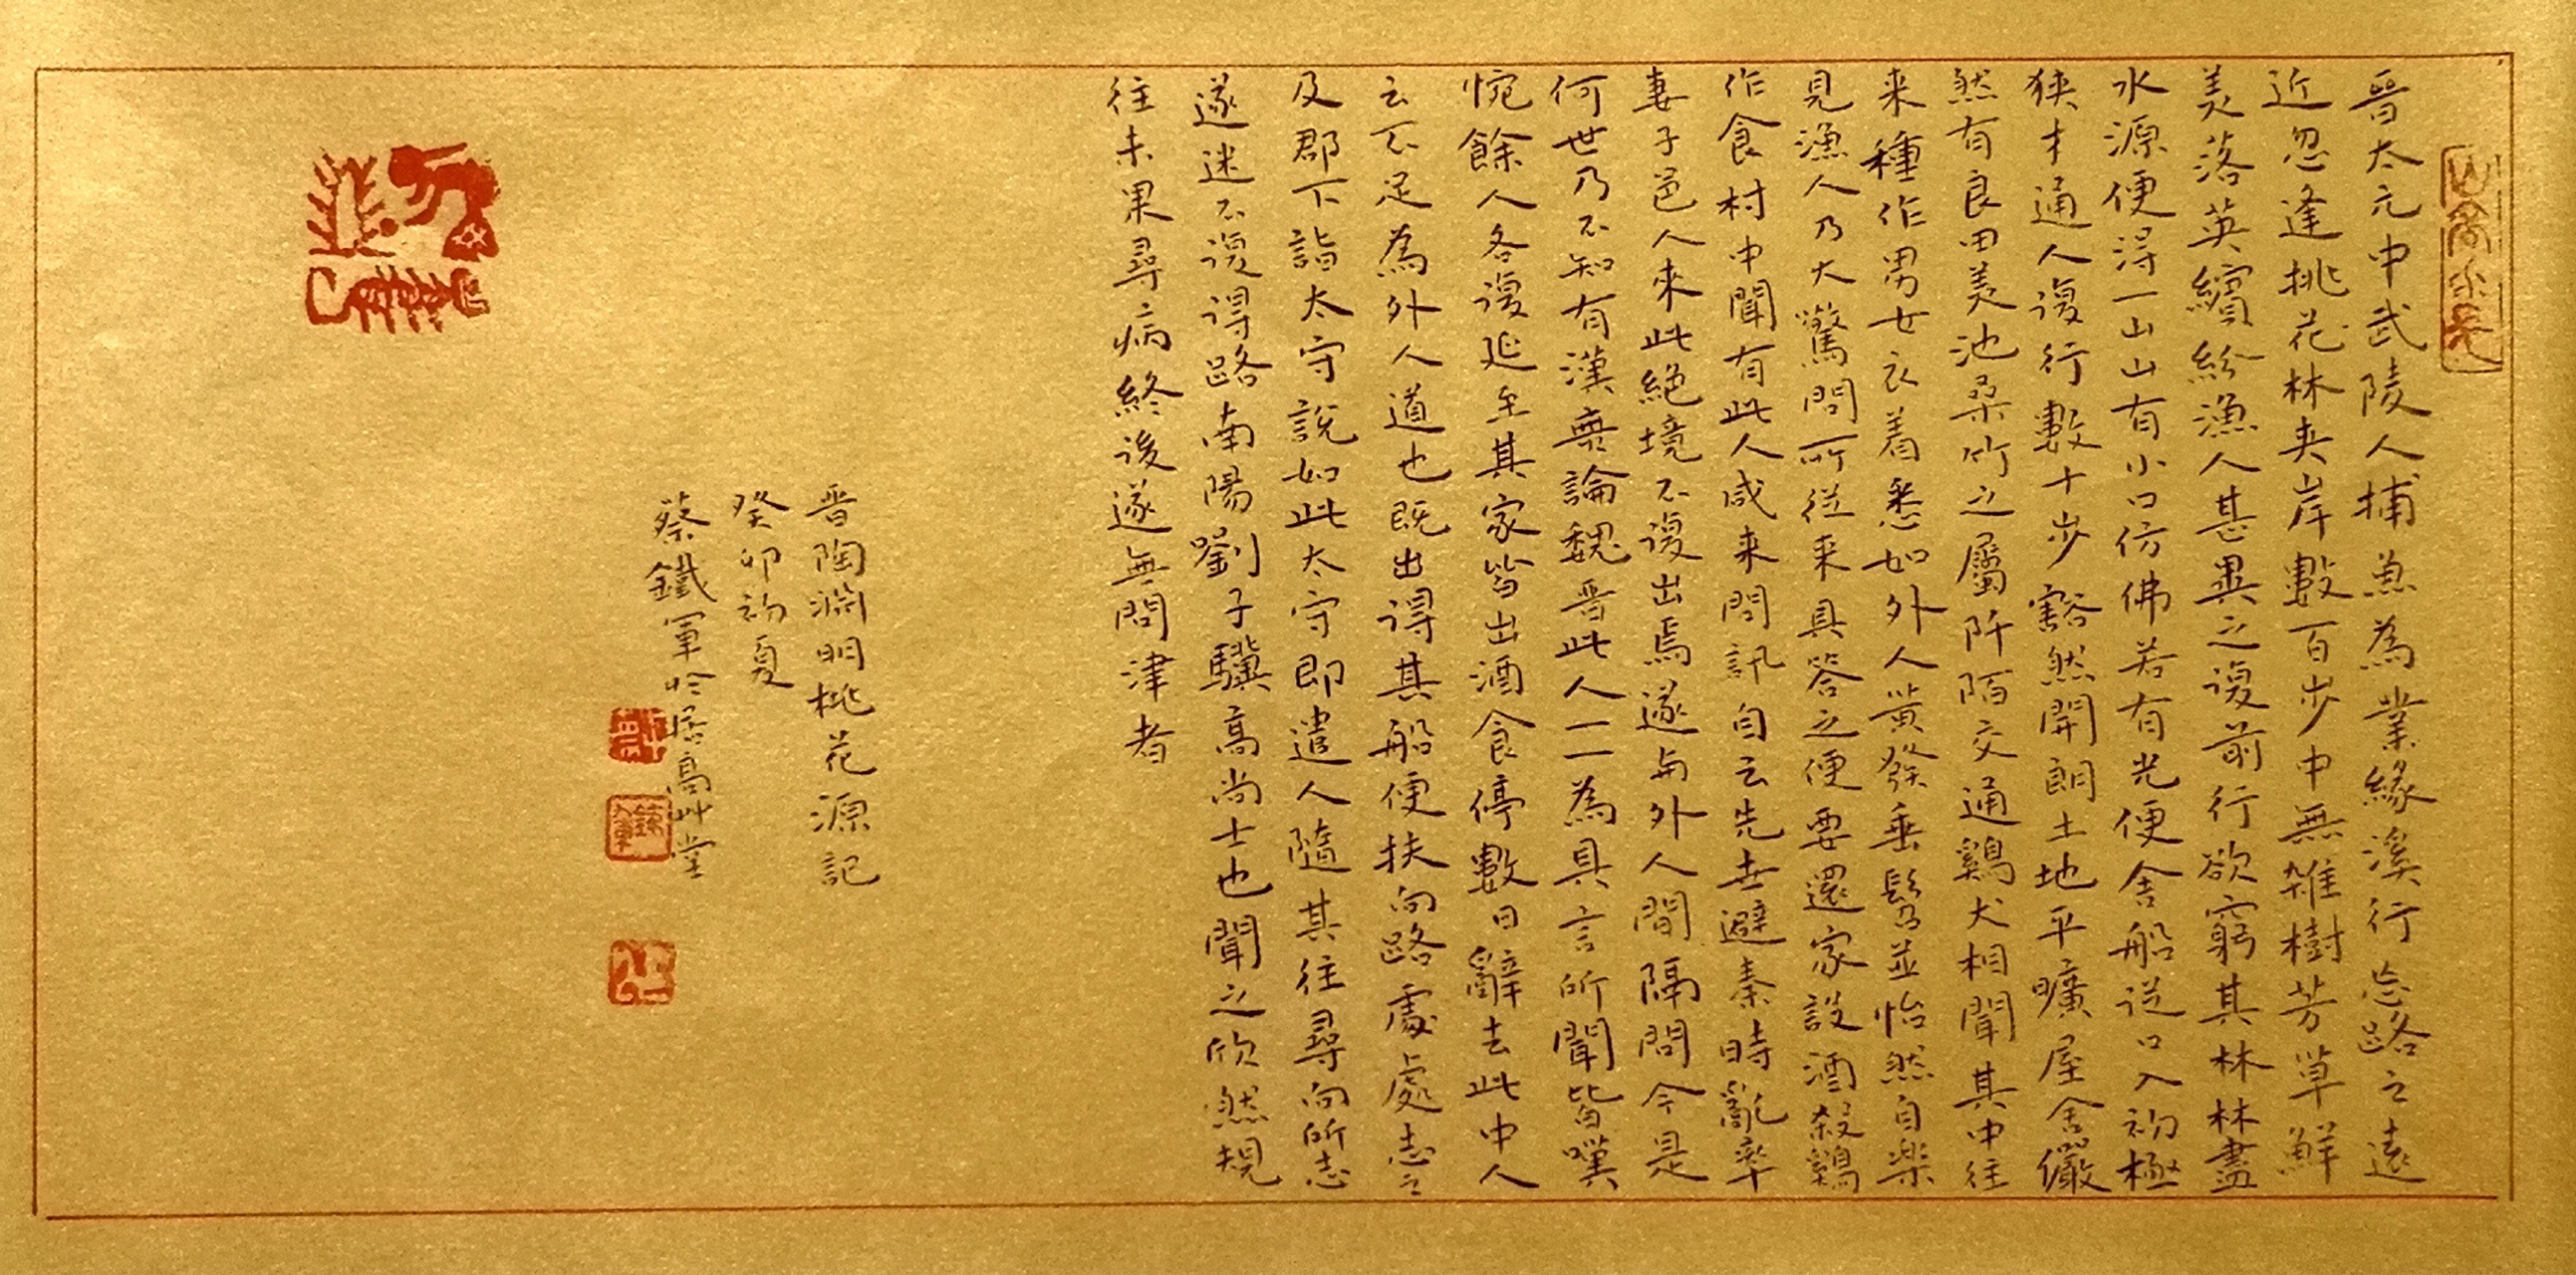 晋太元中武陵人捕魚為業緣溪行忘路之遠
近忽逢桃花林夹岸數百步中無雑樹芳草鮮
美落英繽紛漁人甚異之復前行欲窮其林林盡
水源便得一山山有小口仿佛若有光便舍船従口入初極
狭才通人復行數十步豁然開朗土地平曠屋舍儼
然有良田美池桑竹之屬阡陌交通鷄犬相聞其中往
来種作男女衣着悉如外人黄發垂髫並怡然自楽
見漁人乃大驚問所従来具答之便要還家設酒殺鷄
作食村中聞有此人咸来問訊自云先世避秦時亂率
妻子邑人來此絶境不復出焉遂与外人間隔問今是
何世乃不知有漢無論魏晋此人一一為具言所聞皆嘆
惋餘人各復延至其家皆出酒食停數日辭去此中人
云不足為外人道也既出得其船便扶向路處處志之
及郡下詣太守説如此太守即遣人隨其往尋向所志
遂迷不復得路南陽劉子驥高尚士也聞之欣然規
往未果尋病終後遂無問津者
晋陶淵明桃花源記
癸卯初夏
蔡鐵軍於居高艸堂